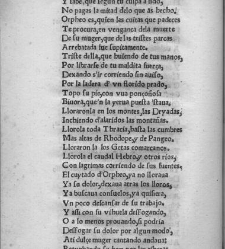 Y sabe, que segun tu culpa a sido,
No pagas la mitad dello que as hecho.
Orpheo es, quien las cuitas que padeces
Te procura, en vengança dela muerte
De su muger, que de los tristes parcas
Arrebatada fue supitamente.
Triste della, que huiendo de tus manos,
Por librarse de tu maldita fuerça,
Dexando s'ir corriendo sin auiso,
Por la ladera d' vn florido prado,
Topo su pie, con vna ponçoñosa
Biuora, qu'en la yerua puesta 'staua,
Lloraronla en los montes, las Dryadas,
Inchiendo d'alaridos las montañas.
Llorola toda Thracia, hasta las cumbres
Mas altas de Rhodope, y de Pangeo.
Lloraron la los Getas comarcanos
Llorola el caudal Hebro, y otros rios,
Con lagrimas corriendo de sus fuentes.
El cuytado d'Orpheo, ya no lloraua
Ya su dolor, dexaua atras los lloros,
Ya buscaua consuelos, ya quisiera,
Vn poco descansar de su trabajo,
Y assi con su vihuela desfogando,
O a lo menos prouando, si podria
Desfogar su dolor por algun modo,
A ti dulce muger cantando andaua